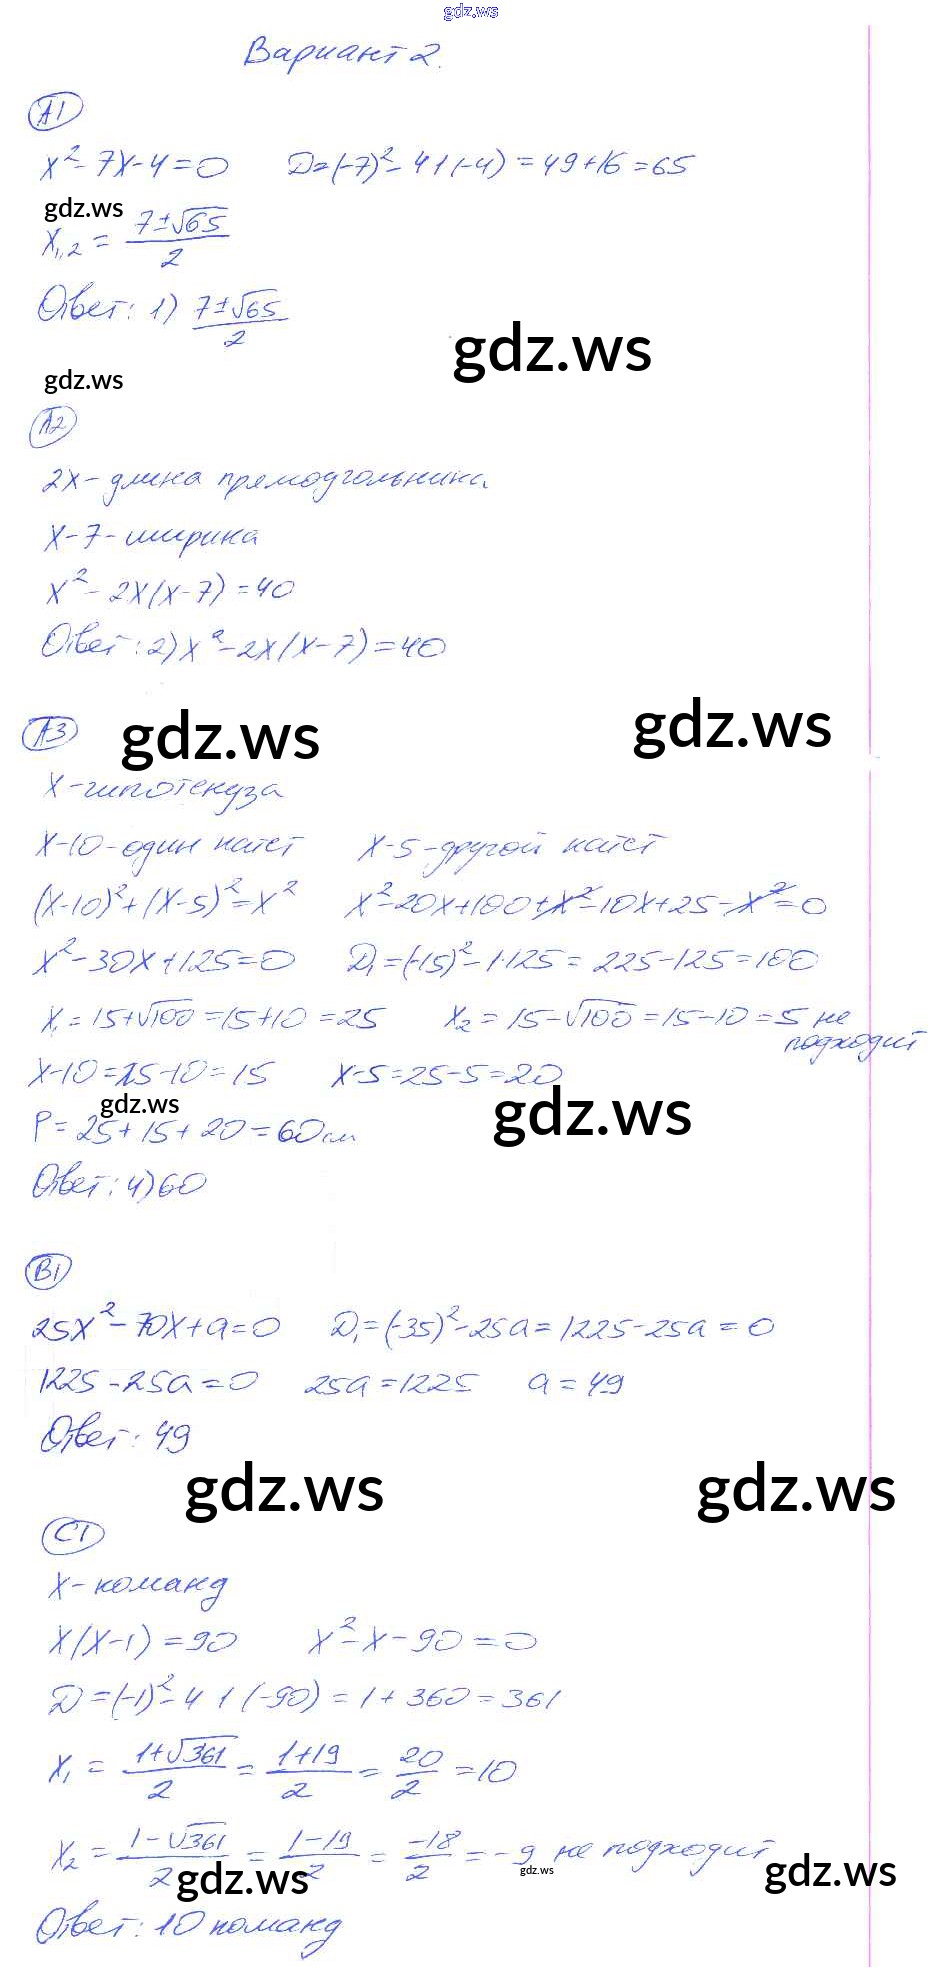 gdz.ws
Вариант 2.
А1
x² - 7x - 4 = 0 D = (-7)² - 4 1 (-4) = 49 + 16 = 65
gdz.ws
x₁,₂ = (7 ± √65) / 2
Ответ: 1) (7 ± √65) / 2
gdz.ws
gdz.ws
А2
2x - длина прямоугольника
x - 7 - ширина
x² - 2x(x - 7) = 40
Ответ: 2) x² - 2x(x - 7) = 40
gdz.ws
gdz.ws
А3
x - гипотенуза
x - 10 - один катет x - 5 - другой катет
(x-10)² + (x-5)² = x² x² - 20x + 100 + x² - 10x + 25 - x² = 0
x² - 30x + 125 = 0 D₁ = (-15)² - 1·125 = 225 - 125 = 100
x₁ = 15 + √100 = 15 + 10 = 25 x₂ = 15 - √100 = 15 - 10 = 5 не
подходит
x - 10 = 25 - 10 = 15 x - 5 = 25 - 5 = 20
gdz.ws
gdz.ws
P = 25 + 15 + 20 = 60 см
Ответ: 4) 60
В1
25x² - 70x + a = 0 D₁ = (-35)² - 25a = 1225 - 25a = 0
1225 - 25a = 0 25a = 1225 a = 49
Ответ: 49
gdz.ws
gdz.ws
С1
x - команд
x(x - 1) = 90 x² - x - 90 = 0
D = (-1)² - 4 1 (-90) = 1 + 360 = 361
x₁ = (1 + √361) / 2 = (1 + 19) / 2 = 20 / 2 = 10
x₂ = (1 - √361) / 2 = (1 - 19) / 2 = -18 / 2 = -9 не подходит
gdz.ws
gdz.ws
gdz.ws
Ответ: 10 команд